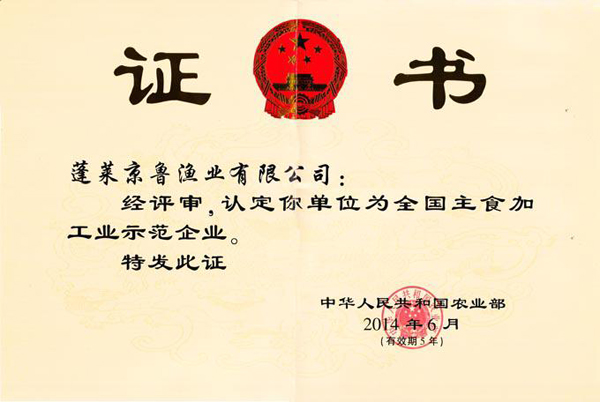 证书
蓬莱京鲁渔业有限公司：
经评审，认定你单位为全国主食加
工业示范企业。
特发此证
中华人民共和国农业部
2014年6月
（有效期5年）